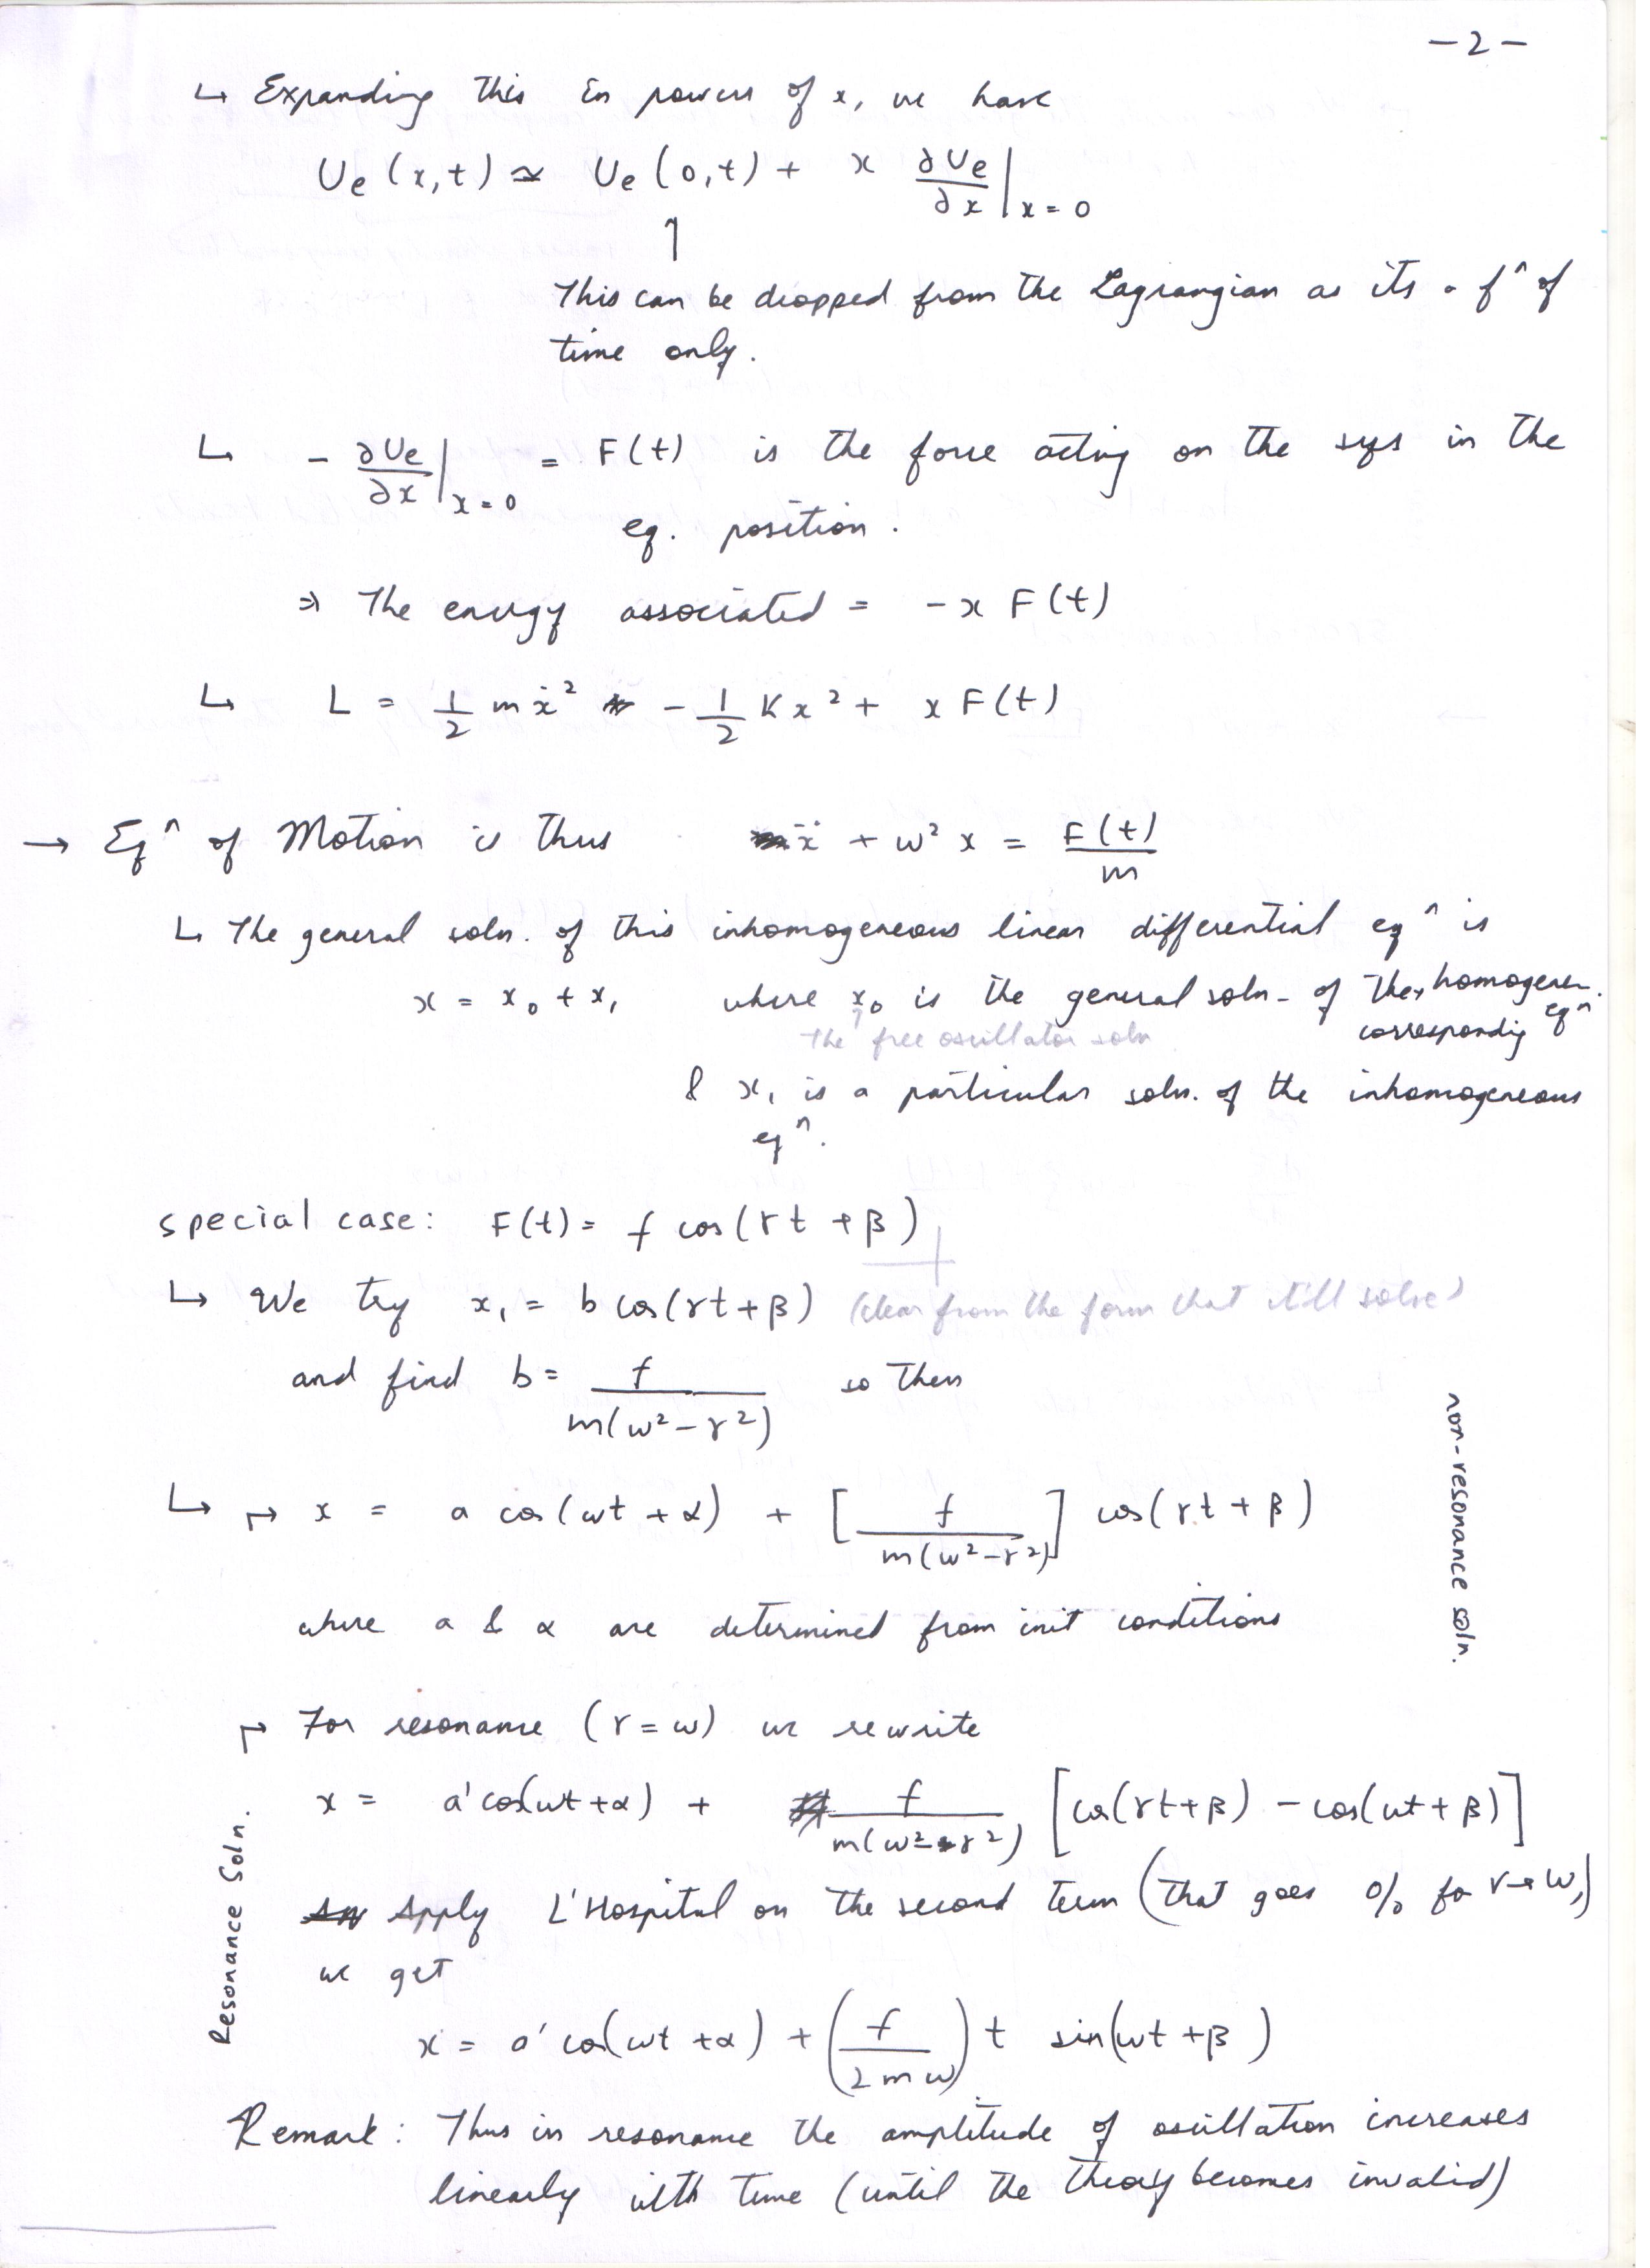 -2-
↳ Expanding this in powers of x, we have
Ue(x,t) ≃ Ue(0,t) + x ∂Ue/∂x |x=0
↑
This can be dropped from the Lagrangian as its a fⁿ of
time only.
↳ - ∂Ue/∂x |x=0 = F(t) is the force acting on the sys in the
eq. position.
⇒ The energy associated = -x F(t)
↳ L = 1/2 mẋ² - 1/2 Kx² + x F(t)
→ Eqⁿ of Motion is thus ẍ + ω²x = F(t)/m
↳ The general soln. of this inhomogeneous linear differential eqⁿ is
x = x₀ + x₁ where x₀ is the general soln. of the homogenen.
corresponding eqⁿ
↑
The free oscillator soln
& x₁ is a particular soln. of the inhomogeneous
eqⁿ.
special case: F(t) = f cos(γt + β)
↳ We try x₁ = b cos(γt + β) (clear from the form that it'll solve)
and find b = f/m(ω²-γ²) so then
↳ ↦ x = a cos(ωt + α) + [f/m(ω²-γ²)] cos(γt + β)
non-resonance soln.
where a & α are determined from init conditions
↦ For resonance (γ = ω) we rewrite
x = a' cos(ωt + α) + f/m(ω²-γ²) [cos(γt + β) - cos(ωt + β)]
Apply L'Hospital on the second term (that goes 0/0 for γ→ω,)
we get
Resonance Soln.
x = a' cos(ωt + α) + (f/2mω) t sin(ωt + β)
Remark: Thus in resonance the amplitude of oscillation increases
linearly with time (until the theory becomes invalid)